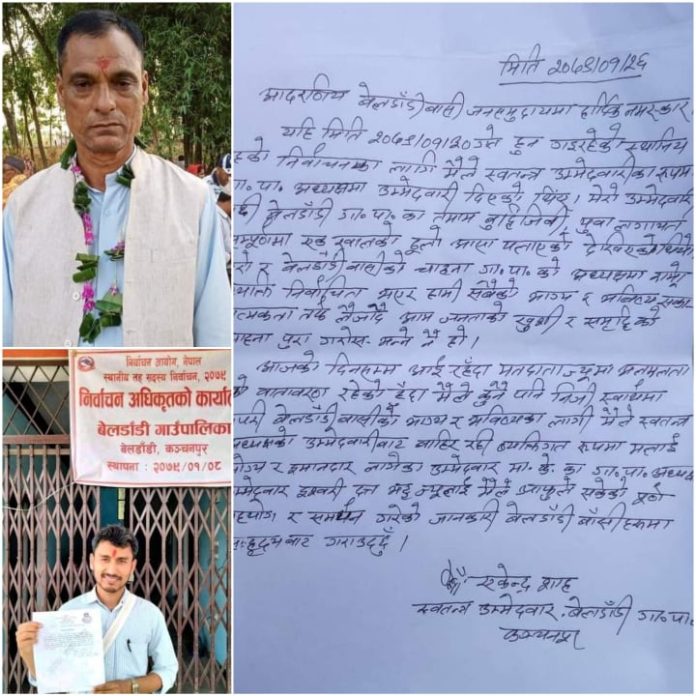 निर्वाचन आयोग, नेपाल
स्थानीय तह सदस्य निर्वाचन, २०७९
निर्वाचन अधिकृतको कार्याल
बेलडाँडी गाउँपालिका
बेलडाँडी, कञ्चनपुर
स्थापना : २०७९/०१/०८
मिति २०७९/०१/२६
आदरणिय बेलडाँडी बासी जनसमुदायमा हार्दिक नमस्कार
यहि मिति २०७९/०१/३० गते हुन गइरहेको स्थानिय
तहको निर्वाचनका लागि मैले स्वतन्त्र उम्मेदवारीका रूपमा
गा॰ पा॰ अध्यक्षमा उम्मेदवारी दिएको थिएं। मेरो उम्मेदवार
बेलडाँडी गा॰ पा॰ का तमाम बुद्धिजिवी, युवा लगायत
एक खालको ठूलो आशा पलाएको देखिएको थियो
र बेलडाँडी बासीको चाहना गा॰ पा॰ को अध्यक्षमा राम्रो
निर्वाचित भएर हामी सबैको भाग्य र भविष्य
तर्फ लैजाँदै आम जनताको खुशी र समृद्धिको
चाहना पुरा गरोस् भन्ने नै हो।
आजको दिनसम्म आई रहँदा मतदाताज्यूमा अलमलता
को वातावरण रहेको हुँदा मैले कुनै पनि निजी स्वार्थमा
नपरी बेलडाँडी बासीको भाग्य र भविष्यका लागी मैले स्वतन्त्र
अध्यक्षको उम्मेदवारीबाट बाहिर रही व्यक्तिगत रूपमा मलाई
योग्य र इमानदार लागेका उम्मेदवार मा. के. का गा॰ पा॰ अध्यक्ष
उम्मेदवार ईश्वरी दत्त भट्ट ज्यूलाई मैले आफुले सकेको पूर्ण
सहयोग र समर्थन गरेको जानकारी बेलडाँडी बाँसीहरूमा
हृदयबाट गराउदछुँ।
स्वतन्त्र उम्मेदवार, बेलडाँडी गा॰ पा॰
कञ्चनपुर